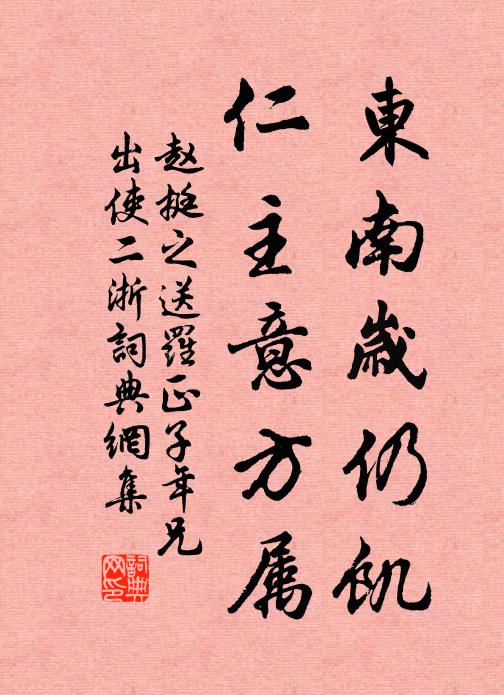 東南歲仍飢
仁主意方属
赵挺之送羅正子年兄
出使二浙詞典網集
詞典网印